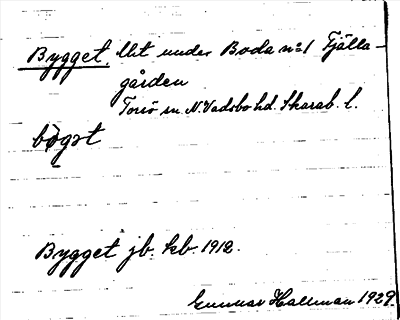 Bygget, lht under Boda nº1 Fjälla-
gården
Torsö sn. N. Vadsbo hd. Skarab. l.
bỳgət
Bygget jb. kb. 1912.
Gunnar Hallman 1929.